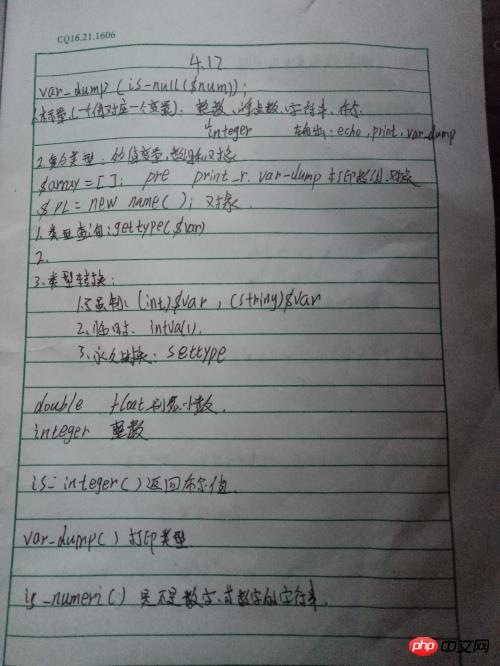 CQ16.21.1606
4.12
var_dump(is-null($num));
1.标量(一个值对应一个变量): 整数、浮点数、字符串、布尔
integer 输出:echo,print,var_dump
2.复合类型: 数组和对象
$array=[]; pre print_r. var-dump 打印数组.对象
$P1=new name( ); 对象
1.类型查询:gettype($var)
2.
3.类型转换:
1.强制:(int)$var,(string)$var
2.临时. intval(),
3.永久转换: settype
double float 小数.
integer 整数
is-integer()返回布尔值.
var-dump()打印类型
is-numeri()是不是数字、或数字的字符串.
php中文网